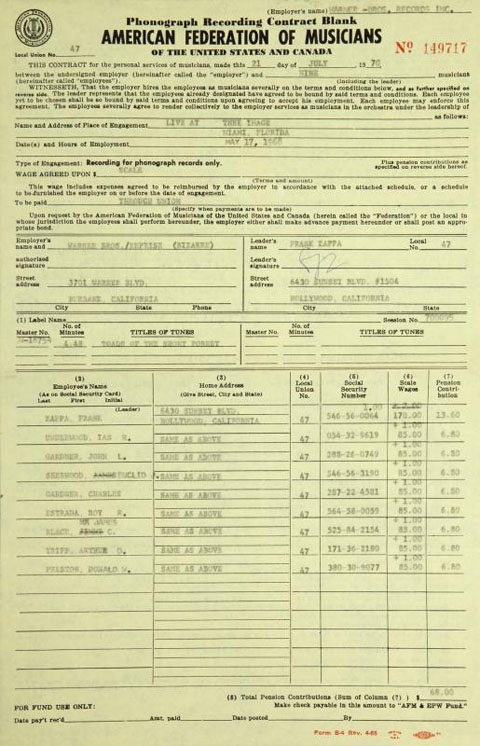 (Employer's name) WARNER - BROS. RECORDS INC.
Phonograph Recording Contract Blank
AMERICAN FEDERATION OF MUSICIANS
OF THE UNITED STATES AND CANADA
Local Union No. 47
Nº 149717
THIS CONTRACT for the personal services of musicians, made this 21 day of JULY 19 70
between the undersigned employer (hereinafter called the "employer") and NINE musicians
(hereinafter called "employees"). (including the leader)
WITNESSETH, That the employer hires the employees as musicians severally on the terms and conditions below, and as further specified on
reverse side. The leader represents that the employees already designated have agreed to be bound by said terms and conditions. Each employee
yet to be chosen shall be so bound by said terms and conditions upon agreeing to accept his employment. Each employee may enforce this
agreement. The employees severally agree to render collectively to the employer services as musicians in the orchestra under the leadership of
as follows:
Name and Address of Place of Engagement LIVE AT THEE IMAGE
MIAMI, FLORIDA
Date(s) and Hours of Employment MAY 17, 1968
Type of Engagement: Recording for phonograph records only.
Plus pension contributions as
specified on reverse side hereof.
WAGE AGREED UPON $ SCALE
(Terms and amount)
This wage includes expenses agreed to be reimbursed by the employer in accordance with the attached schedule, or a schedule
to be furnished the employer on or before the date of engagement.
To be paid THROUGH UNION
(Specify when payments are to be made)
Upon request by the American Federation of Musicians of the United States and Canada (herein called the "Federation") or the local in
whose jurisdiction the employees shall perform hereunder, the employer either shall make advance payment hereunder or shall post an appropriate
bond.
Employer's name and WARNER BROS./REPRISE (BIZARRE)
authorized signature
Street address 3701 WARNER BLVD.
BURBANK, CALIFORNIA
City State Phone
Leader's name FRANK ZAPPA Local No. 47
Leader's signature
Street address 6430 SUNSET BLVD. #1504
HOLLYWOOD, CALIFORNIA
City State
(1) Label Name Session No.
Master No. No. of Minutes TITLES OF TUNES Master No. No. of Minutes TITLES OF TUNES
4.48 TOADS OF THE SHORT FOREST
(2) Employee's Name (As on Social Security Card) Last First Initial
(3) Home Address (Give Street, City and State)
(4) Local Union No.
(5) Social Security Number
(6) Scale Wages
(7) Pension Contribution
(Leader) 6430 SUNSET BLVD.
ZAPPA, FRANK HOLLYWOOD, CALIFORNIA 47 170.00 13.60
+ 1.00
UNDERWOOD, IAN R. SAME AS ABOVE 47 85.00 6.80
+ 1.00
GARDNER, JOHN L. SAME AS ABOVE 47 85.00 6.80
+ 1.00
SHERWOOD, EUCLID J. SAME AS ABOVE 47 85.00 6.80
+ 1.00
GARDNER, CHARLES SAME AS ABOVE 47 85.00 6.80
+ 1.00
ESTRADA, ROY R. SAME AS ABOVE 47 85.00 6.80
JAMES + 1.00
BLACK, C. SAME AS ABOVE 47 85.00 6.80
+ 1.00
TRIPP, ARTHUR D. SAME AS ABOVE 47 85.00 6.80
+ 1.00
PRESTON, DONALD W. SAME AS ABOVE 47 85.00 6.80
(8) Total Pension Contributions (Sum of Column (7)) $ 68.00
Make check payable in this amount to "AFM & EPW Fund."
FOR FUND USE ONLY:
Date pay't rec'd Amt. paid Date posted By
Form B-4 Rev. 4-66